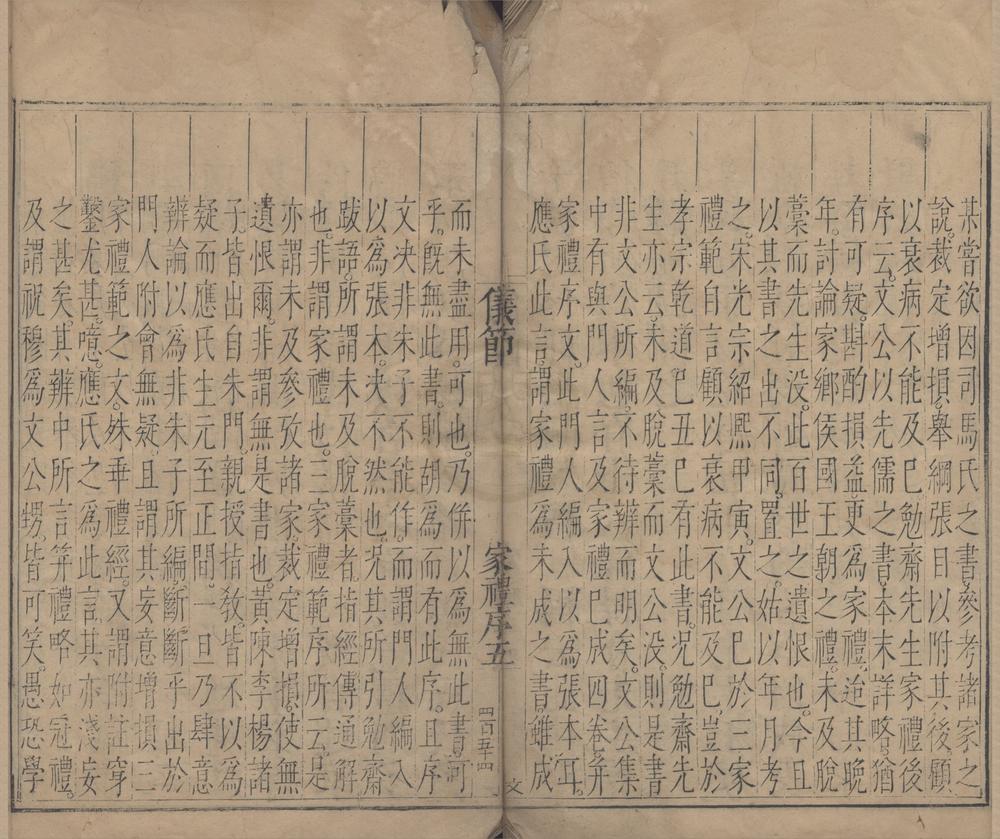 某嘗欲因司馬氏之書參考諸家之
說。裁定增損。舉綱張目以附其後顧
以衰病不能及已勉齋先生家禮後
序云。文公以先儒之書本末詳略猶
有可疑。斟酌損益更爲家禮。迨其晚
年。討論家鄉侯國王朝之禮。未及脫
藁而先生没。此百世之遺恨也。今且
以其書之出不同。置之。姑以年月考
之。宋光宗紹熙甲寅。文公已於三家
禮範自言顧以衰病不能及已。豈於
孝宗乾道己丑已有此書。况勉齋先
生亦云。未及脫藁而文公没。則是書
非文公所編。不待辨而明矣。文公集
中有與門人言及家禮已成四卷。并
家禮序文。此門人編入以爲張本耳。
應氏此言。謂家禮爲未成之書雖成
儀節
家禮序五
四百五十四
文
而未盡用。可也。乃併以爲無此書。可
乎。旣無此書。則胡爲而有此序。且序
文决非朱子不能作。而謂門人編入
以爲張本。决不然也。况其所引勉齋
跋語所謂未及脫藁者。指經傳通解
也。非謂家禮也。三家禮範序所云。是
亦謂未及參攷諸家。裁定增損。使無
遺恨爾。非謂無是書也。黃陳李楊諸
子。皆出自朱門。親授指敎。皆不以爲
疑而應氏生元至正間。一旦乃肆意
辨論以爲非朱子所編。斷斷乎出於
門人附會無疑。且謂其妄意增損三
家禮範之文。殊乖禮經。又謂附註穿
鑿尤甚。噫。應氏之爲此言。其亦淺妄
之甚矣。其辨中所言并禮略。如冠禮。
及謂祝穆爲文公甥。皆可笑。愚恐學